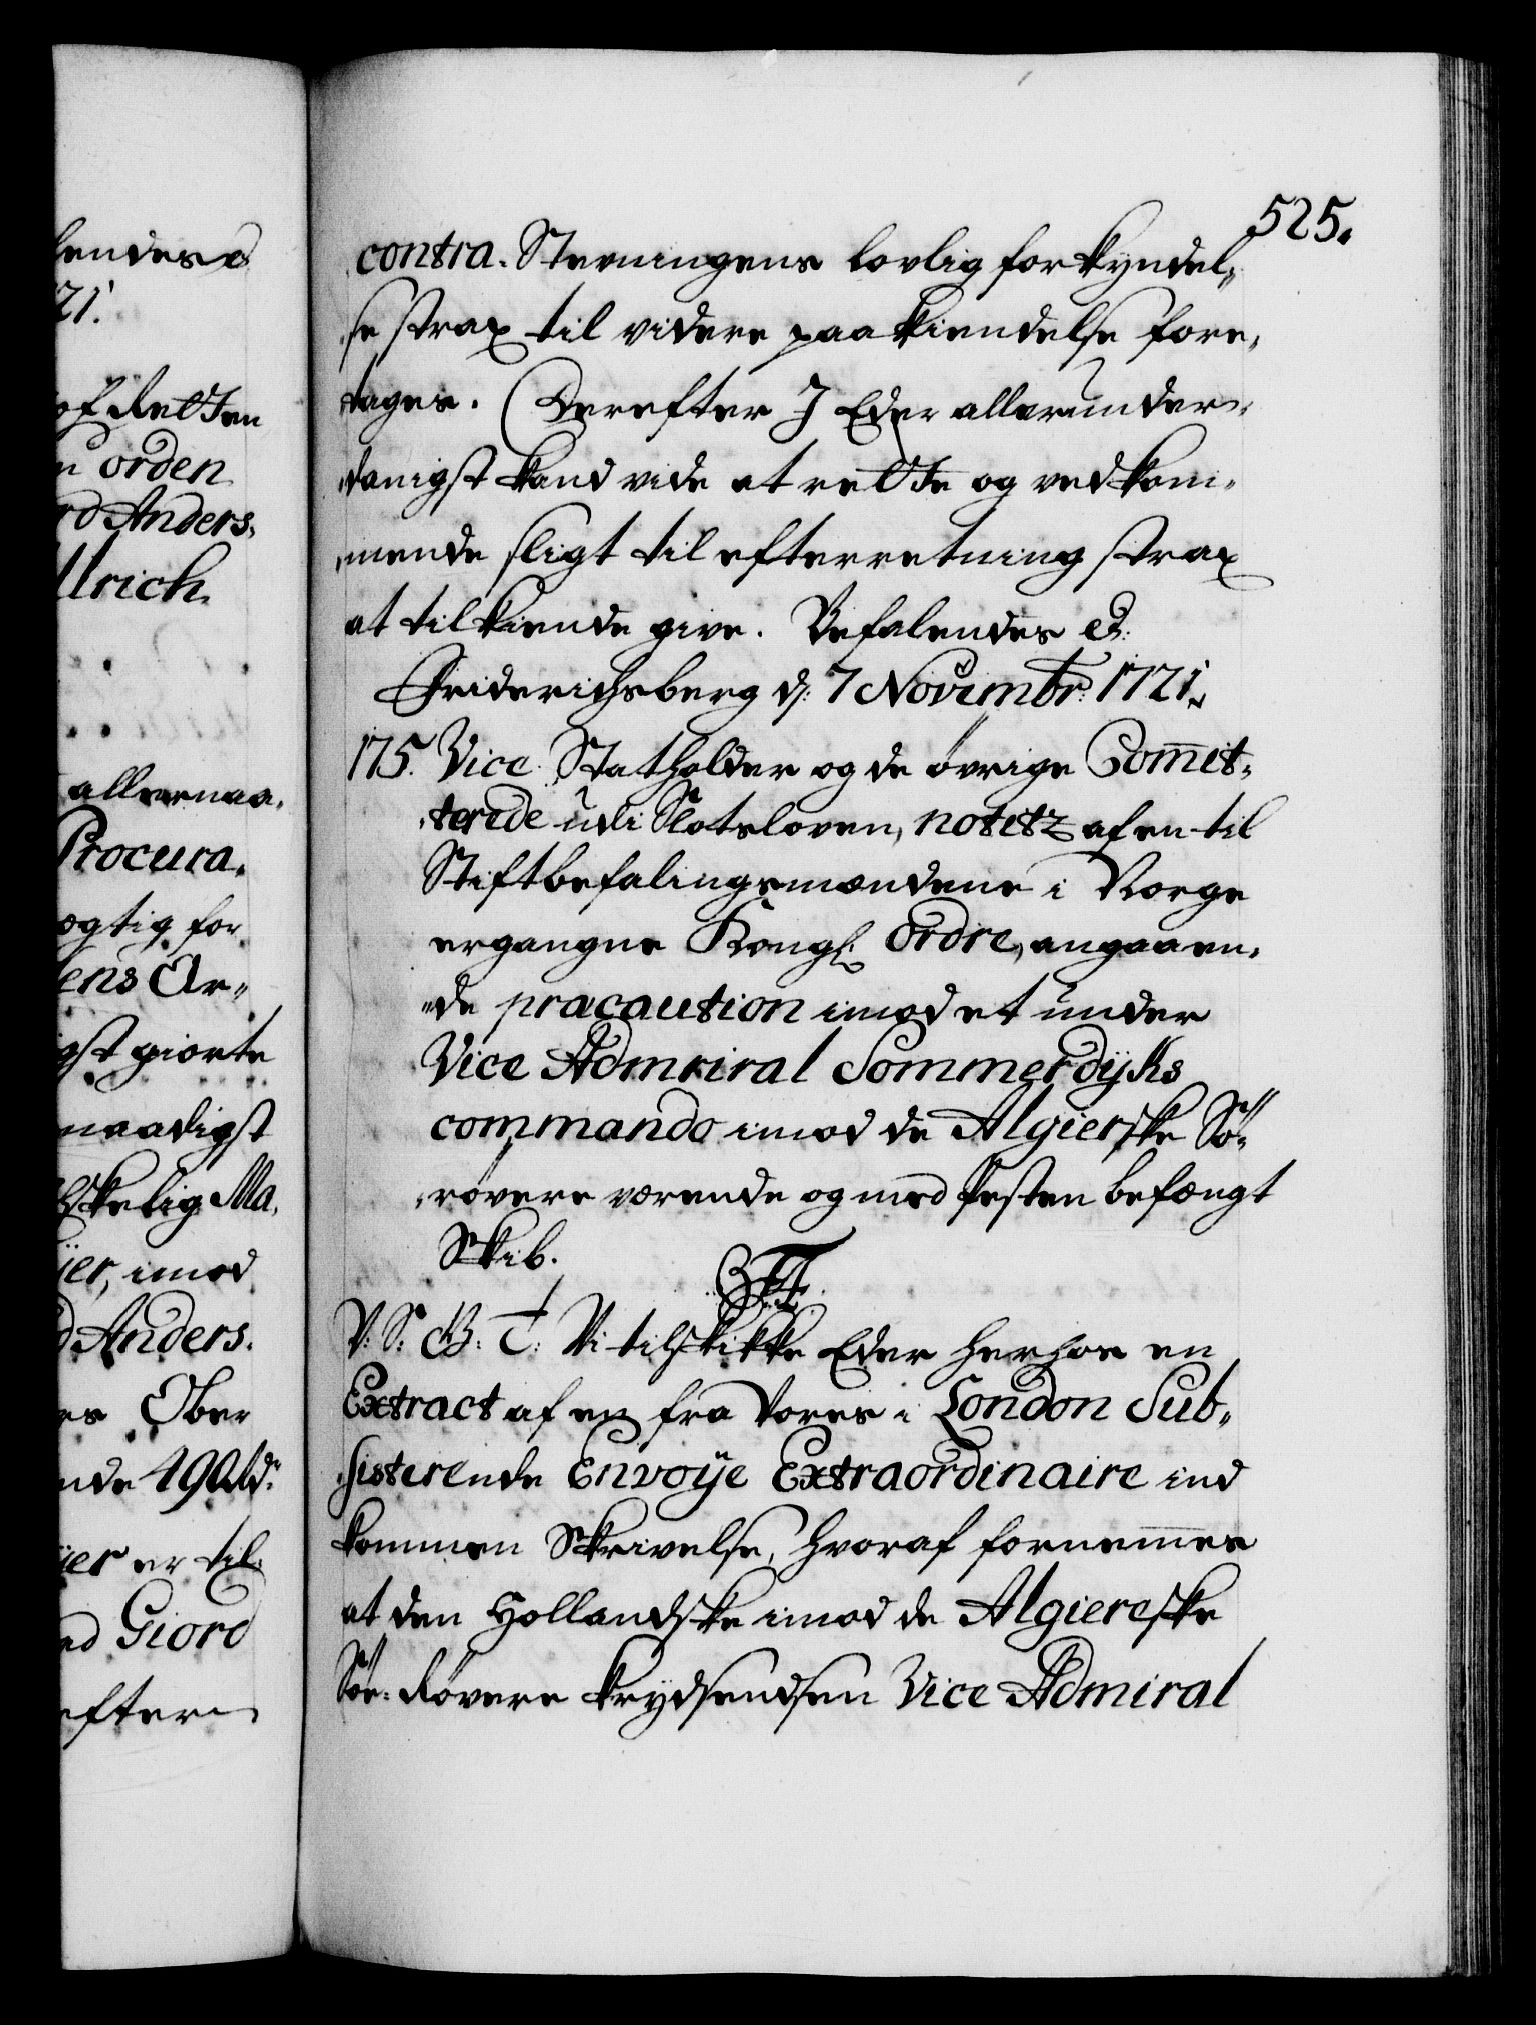 lendes &
21.
of Retten
n orden
rd Anders,
llrich
allernaa,
Procura,
ogtig for
ens Ar„
gst giorte
naadigst
skelig Ma,
ÿer, imod
d Anders.
es Ober
nde 490
ÿer er til
ed Giord
efter
525.
contra. Stevningens lovlig forkyndel„
se strax til videre paakiendelse fore,
tages. Derefter I Eder allerunder„
danigst kand vide at rette og vedkom„
mende sligt til efterretning strax
at tilkiende give. Befalendes &:
Friderichsberg d: 7 Novembr: 1721.
175. Vice Statholder og de øvrige Com̅it„
„terede udi Slotsloven, notitz af en til
Stiftbefalingsmændene i Norge
ergangne Kongl: ordre, angaaen„
„de præcaution imod et under
Vice Admriral Sommerdÿks
commando imod de Algierske Sö„
„rövere værende og med Pesten befængt
Skib.
V: S: G: T: Vi tilskikke Eder herhos en
Extract af en fra Vores i London Sub„
„sisterende Envoÿe Extraordinaire ind
kommen Skrivelse, hvoraf fornem̅es
at den Hollandske imod de Algiereske
Söe-Rövere krydsendsen Vice Admiral